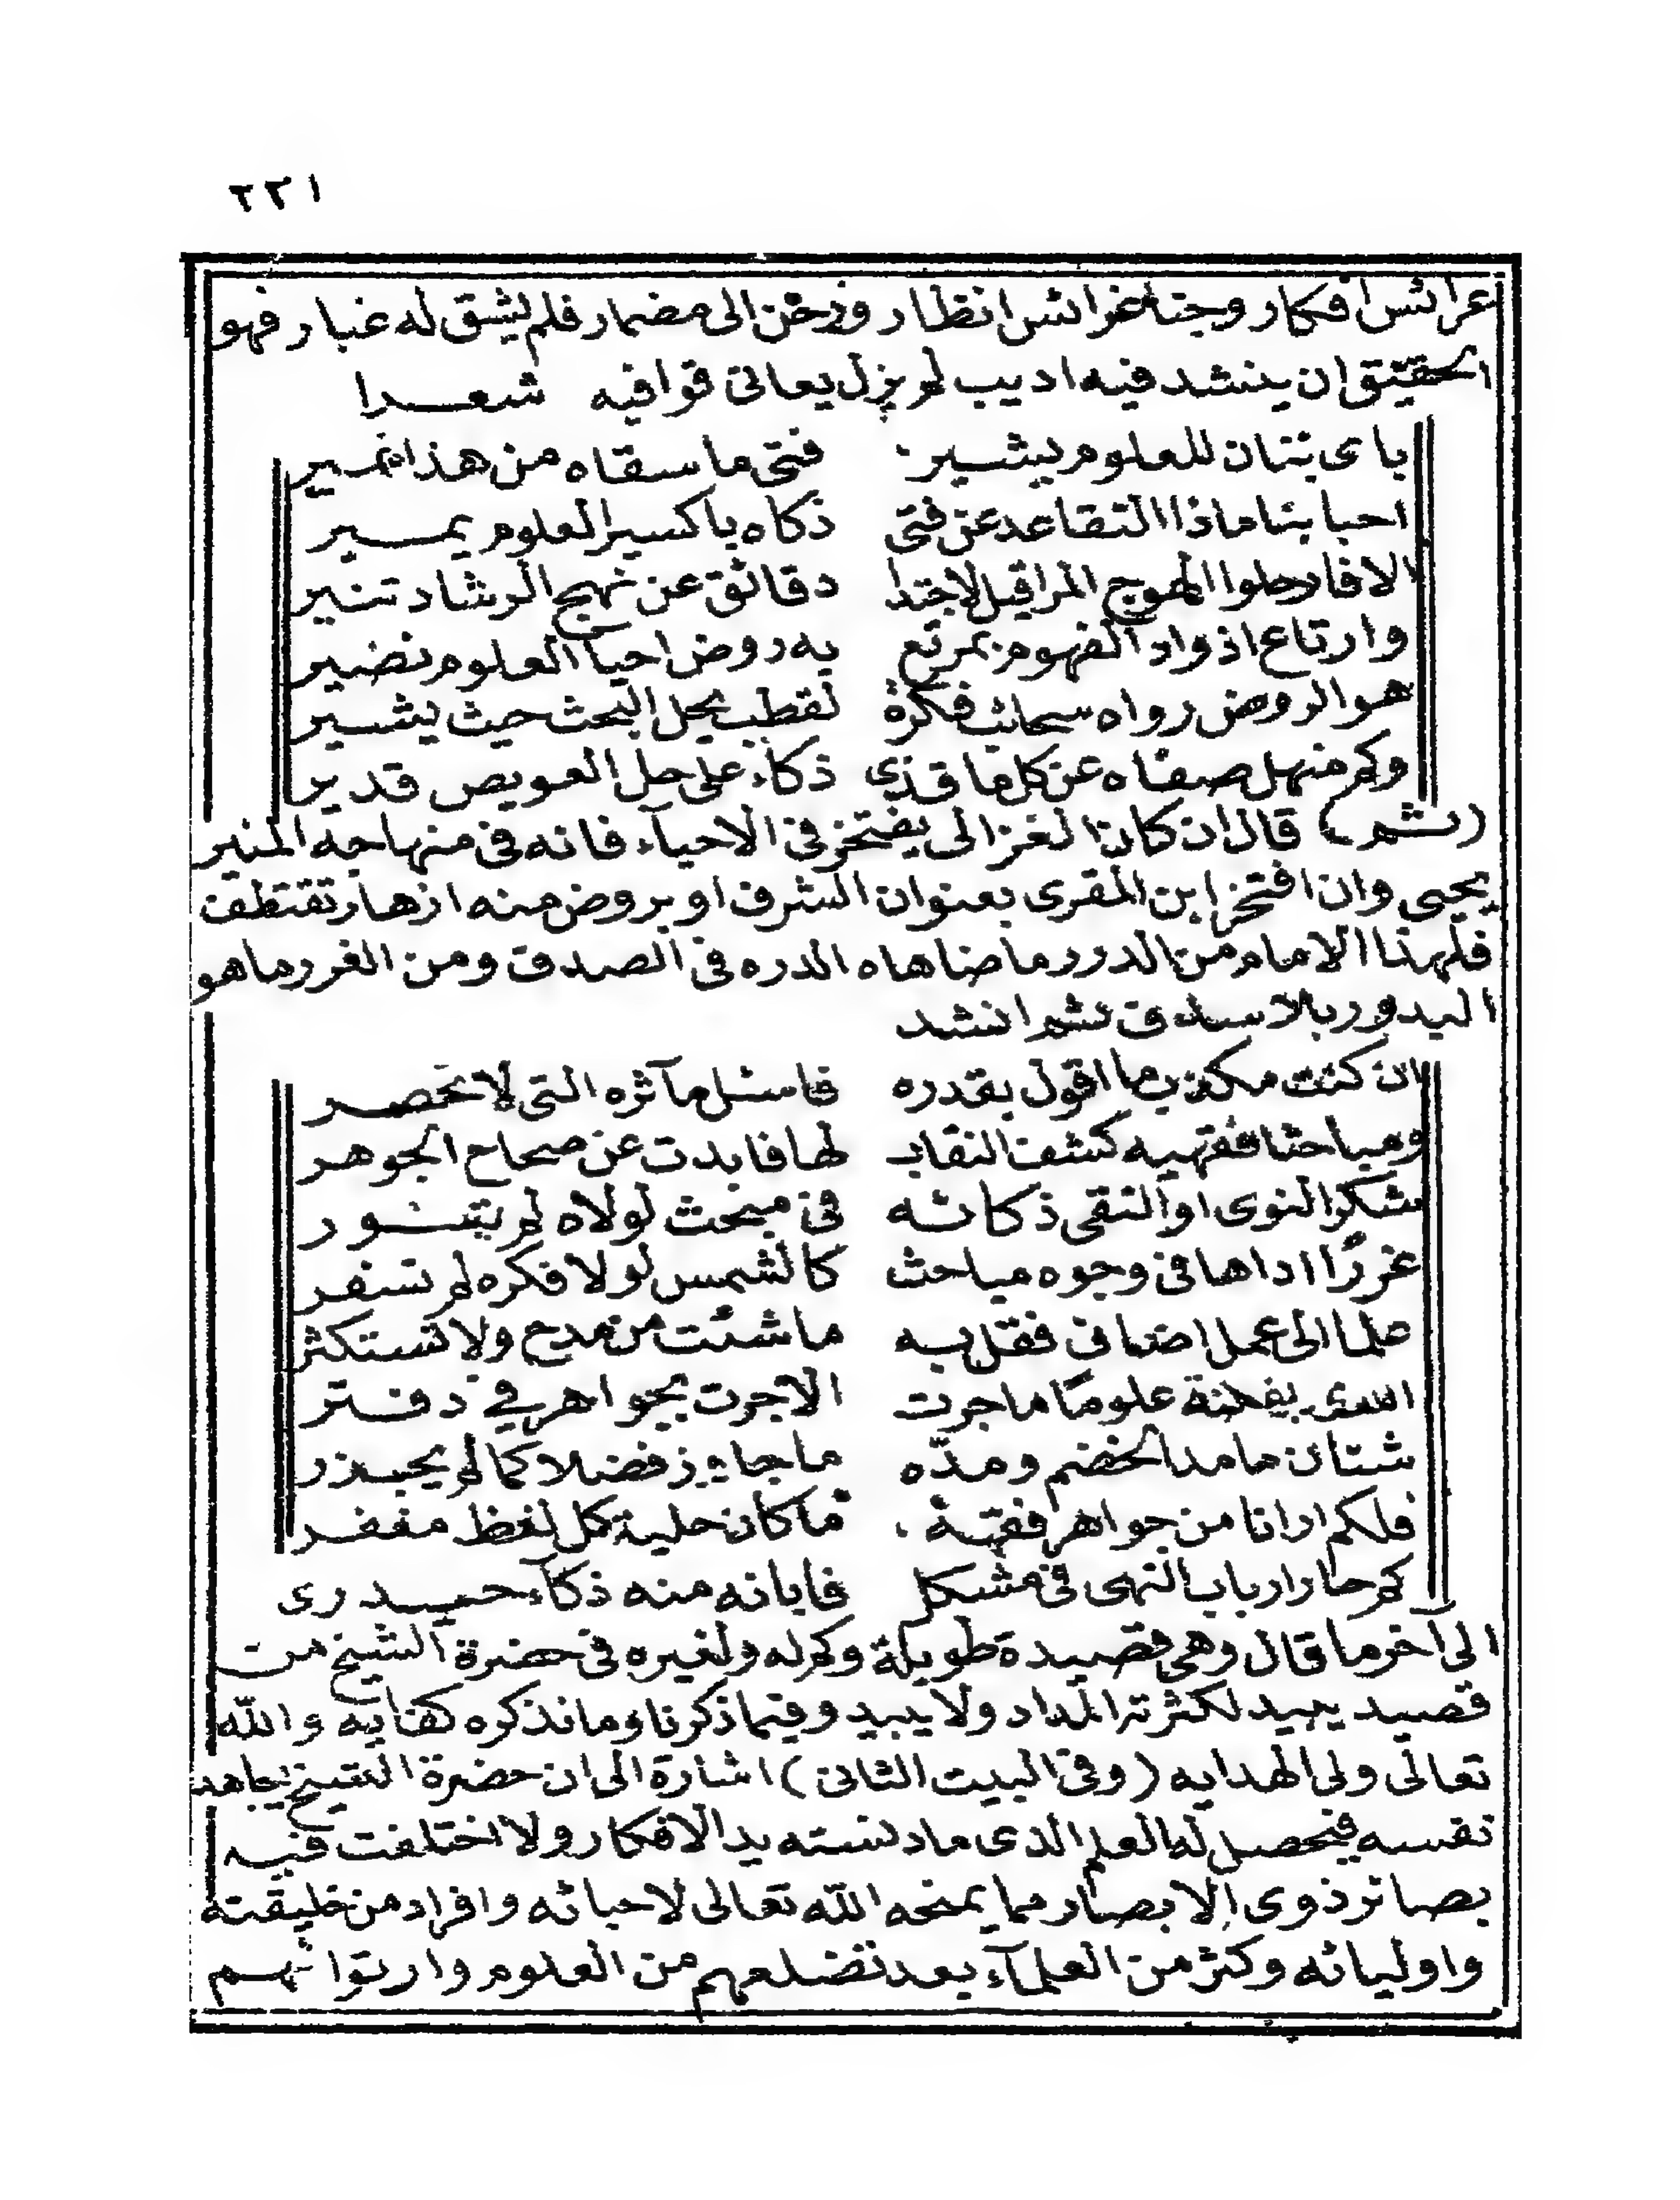 ٢٢١
عرائس افكار وجنا غرائس انظار وزحن الى مضمار فلم يشق له غبار فهو
الحقيق ان ينشد فيه اديب لم يزل يعانى قوافيه شعرا
باى بنان للعلوم يشير فتى ما سقاه من هذا نمير
احبابنا ماذا التقاعد عن فتى ذكاه باكسير العلوم يمير
الا فارحلوا الهوج المراقيل لاجتدا دقائق عن نهج الرشاد تنير
وارتاع اذواد الفهوم بمرتع به روض احيآ العلوم نضير
هو الروض رواه سحائب فكرة لقطب يحل البحث حيث يشير
وكم منهل صفاه عن كل ما قذى ذكاء على حل العويص قدير
(ثم) قال ان كان الغزالى يفتخر فى الاحيآء فانه فى منهاجه المنير
يحيى وان افتخر ابن المقرى بعنوان الشرف او بروض منه ازهار تقتطف
فلهذا الامام من الدرر ما ضاهاه الدره فى الصدق ومن الغرر ما هو
البدور بالاسداف ثم انشد
ان كنت مكذب ما اقول بقدره فاسئل مآثره التى لا تحصر
ومباحثا فقهيه كشف النقاب لها فابدت عن صحاح الجوهر
شكر النوى او التقى ذكائه فى مبحث لولاه لم يتنور
غررًا اداها فى وجوه مباحث كالشمس لولا فكره لم تسفر
علما الى عمل اضافى فقل به ما شئت من مدح ولا تستكثر
اسدى بفطنة علومًا ما جرت الا جرت بجواهر فى دفتر
شتان ما مد الخضم ومدّه ما جاوز فضلا كما لم يجزر
فلكم ارانا من جواهر فقهة ما كان حلية كل لفظ مغفر
كم حار ارباب النهى فى مشكل فابانه منه ذكآء حيدرى
الى آخر ما قال وهى قصيدة طويلة وكم له ولغيره فى حضرة الشيخ من
قصيد يبيد لكثرته المداد ولا يبيد وفيما ذكرنا وما نذكره كفايه والله
تعالى ولى الهدايه (وفى البيت الثانى) اشارة الى ان حضرة الشيخ يجاهد
نفسه فيحصل له العلم الذى ما دنسته يد الافكار ولا اختلفت فيه
بصائر ذوى الابصار مما يمنحه الله تعالى لاحبائه وافراد من خليقته
واوليائه وكثر من العلمآء بعد تضلعهم من العلوم وارتوائهم